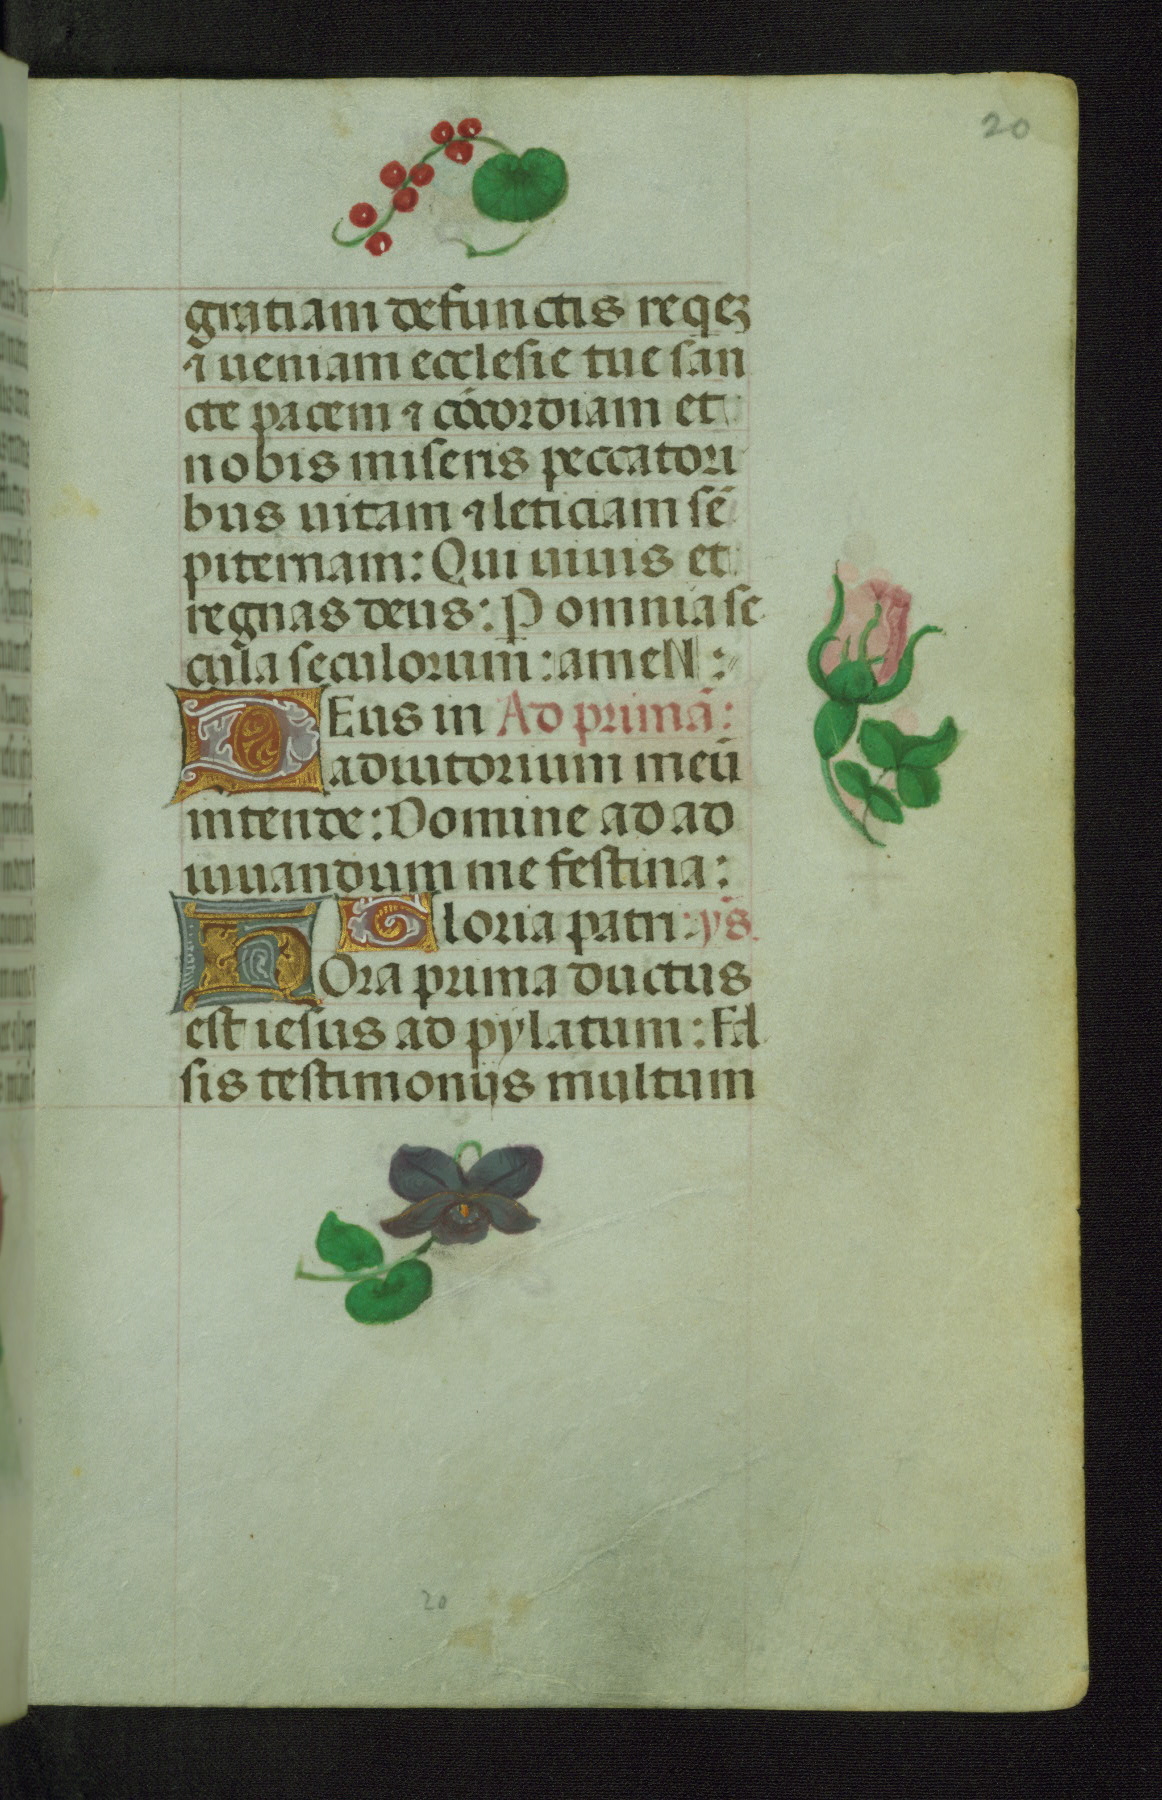 20
gratiam defunctis reqeꝫ
⁊ ueniam ecclesie tue san
cte pacem ⁊ cōcordiam et
nobis miseris peccatori
bus uitam ⁊ leticiam sē
piternam: Qui uiuis et
regnas deus: P omnia se
cula seculorum: ameN:
DEus in Ad primā:
adiutorium meū
intende: Domine ad ad
iuuandum me festina:
Gloria patri: ys.
hOra prima ductus
est iesus ad pylatum: Fal
sis testimonijs multum
20